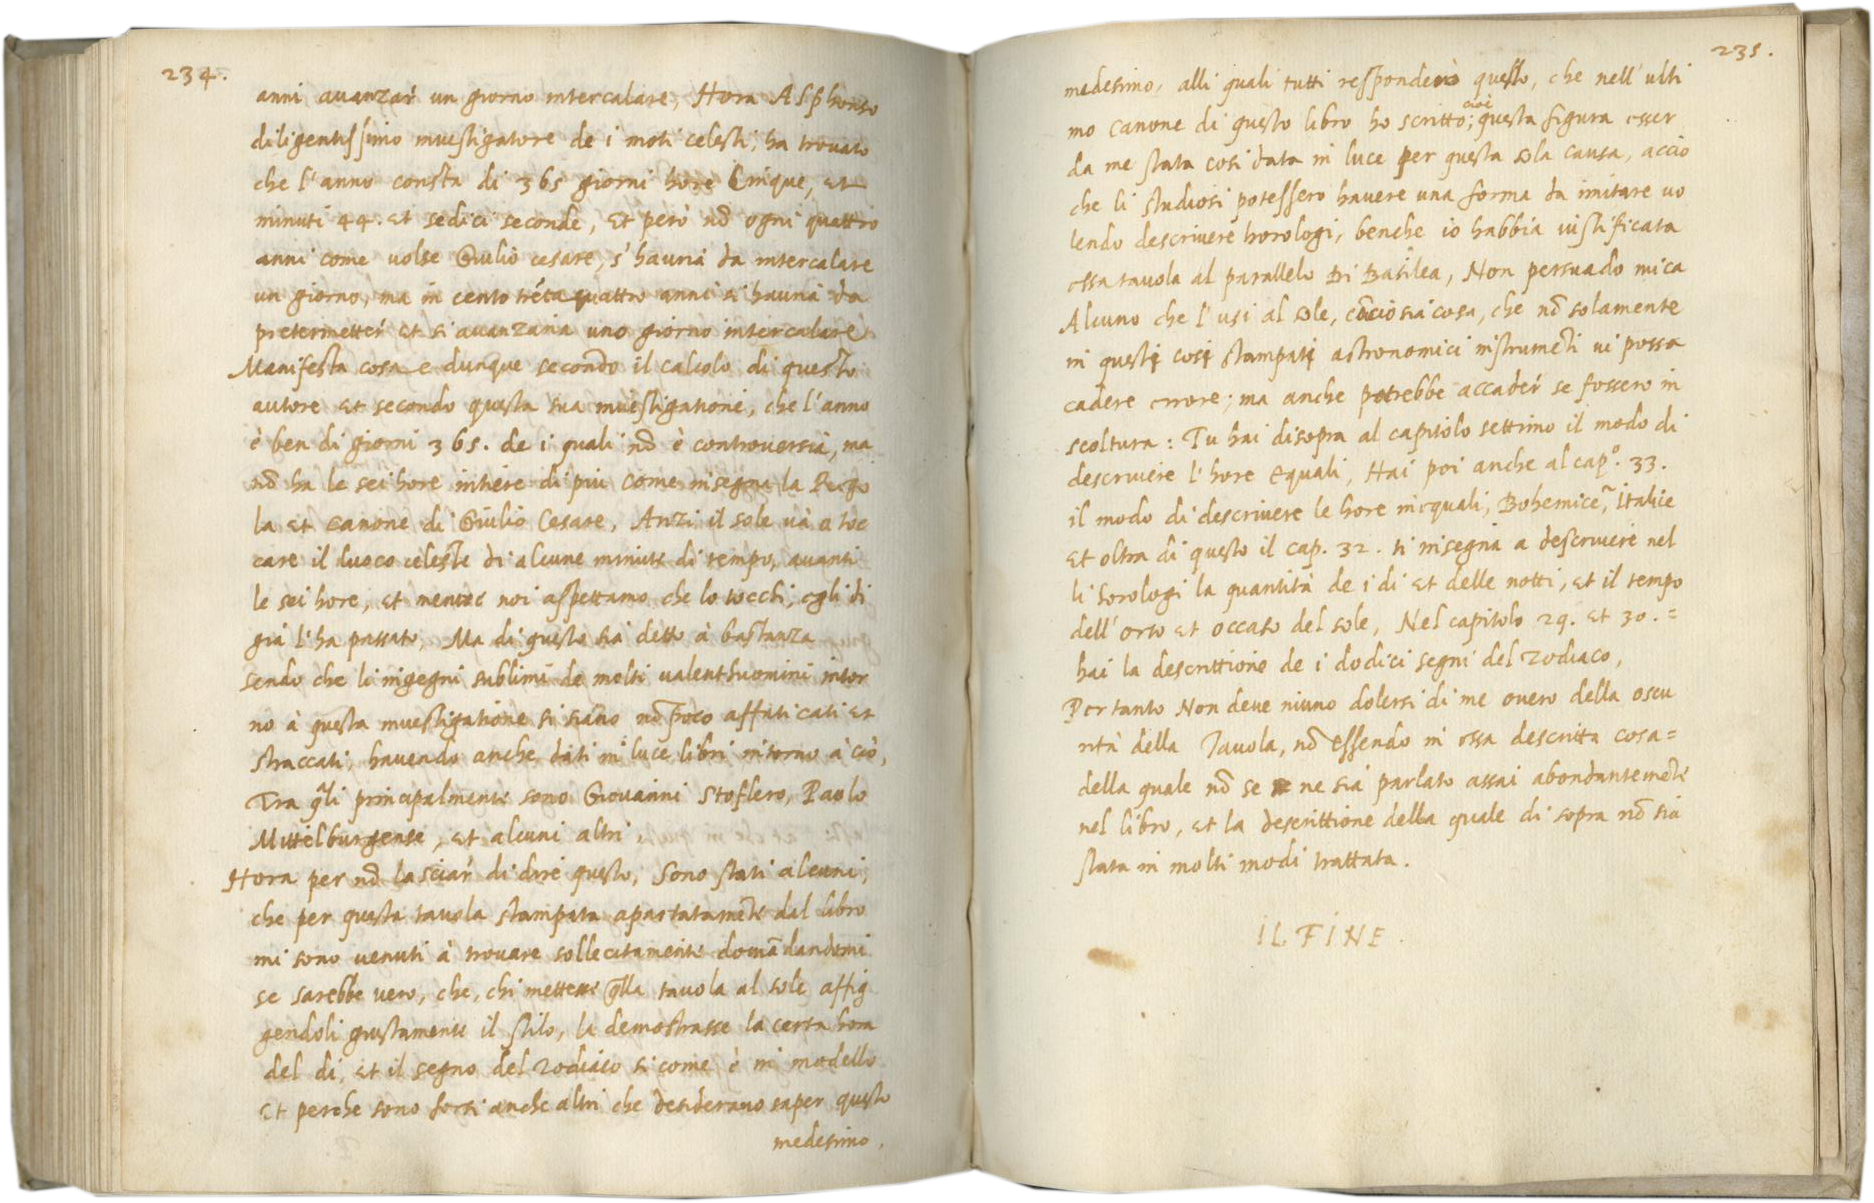 234.
anni auanzar un giorno intercalare, Hora Alphonso
diligentissimo inuestigatore de i moti celesti, ha trouato
che l'anno consta di 365 giorni hore Cinque, et
minuti 44. et sedici seconde, et però nō ogni quattro
anni come uolse Giulio cesare, s'hauria da intercalare
un giorno, ma in cento trēta quattro anni si hauria da
pretermetter et si auanzaria uno giorno intercalare
Manifesta cosa e dunque secondo il calcolo di questo
autore et secondo questa sua inuestigatione, che l'anno
è ben di giorni 365. de i quali nō è controuersia, ma
nō ha le sei hore intiere di piu come insegna la Rego
la et canone di Giulio Cesare, Anzi il sole uà a toc
care il luoco celeste di alcune minute di tempo, auanti
le sei hore, et mentre noi aspettamo che lo tocchi, egli di
già l'ha passato, Ma di questo sia detto à bastanza
sendo che li ingegni sublimi de molti ualenthuomini intor
no à questa inuestigatione si siano nō poco affaticati et
straccati, hauendo anche dati in luce libri intorno à ciò,
Tra q̄li principalmente sono Giouanni Stoflero, Paulo
Mittelburgense, et alcuni altri.
Hora per nō lasciar di dire questo, Sono stati alcuni,
che per questa tauola stampata apartatamēte dal libro
mi sono uenuti à trouare sollecitamente domādandomi
se sarebbe uero, che, chi mettesse q̄lla tauola al sole affig
gendoli giustamente il stilo, li demostrasse la certa hora
del di, et il segno del zodiaco si come è in modello
Et perche sono forsi anche altri che desiderano saper questo
medesimo,
235.
medesimo, alli quali tutti responderò questo, che nell'ulti
mo canone di questo libro ho scritto; cioè questa figura esser
da me stata cosi data in luce per questa sola causa, acciò
che li studiosi potessero hauere una forma da imitare uo
lendo descriuere horologi, benche io habbia iustificata
essa tauola al parallelo Di Basilea, Non persuado mica
Alcuno che l'usi al sole, cōciosia cosa, che nō solamente
in questi cosi stampati astronomici instrumēti ui possa
cadere errore; ma anche potrebbe accader se fossero in
scoltura: Tu hai disopra al capitolo settimo il modo di
descriuere l'hore Equali, Hai poi anche al capº. 33.
il modo di descriuere le hore inequali, Bohemice, Italice
et oltra di questo il cap. 32. ti insegna a descriuere nel
li horologi la quantità de i di et delle notti, et il tempo
dell'orto et occaso del sole, Nel capitolo 29. et 30.=
hai la descrittione de i dodici segni del zodiaco,
Per tanto Non deue niuno dolersi di me ouero della oscu
rità della Tauola, nō essendo in essa descritta cosa=
della quale nō se ne sia parlato assai abondantemēte
nel libro, et la descrittione della quale di sopra nō sia
stata in molti modi trattata.
IL FINE.